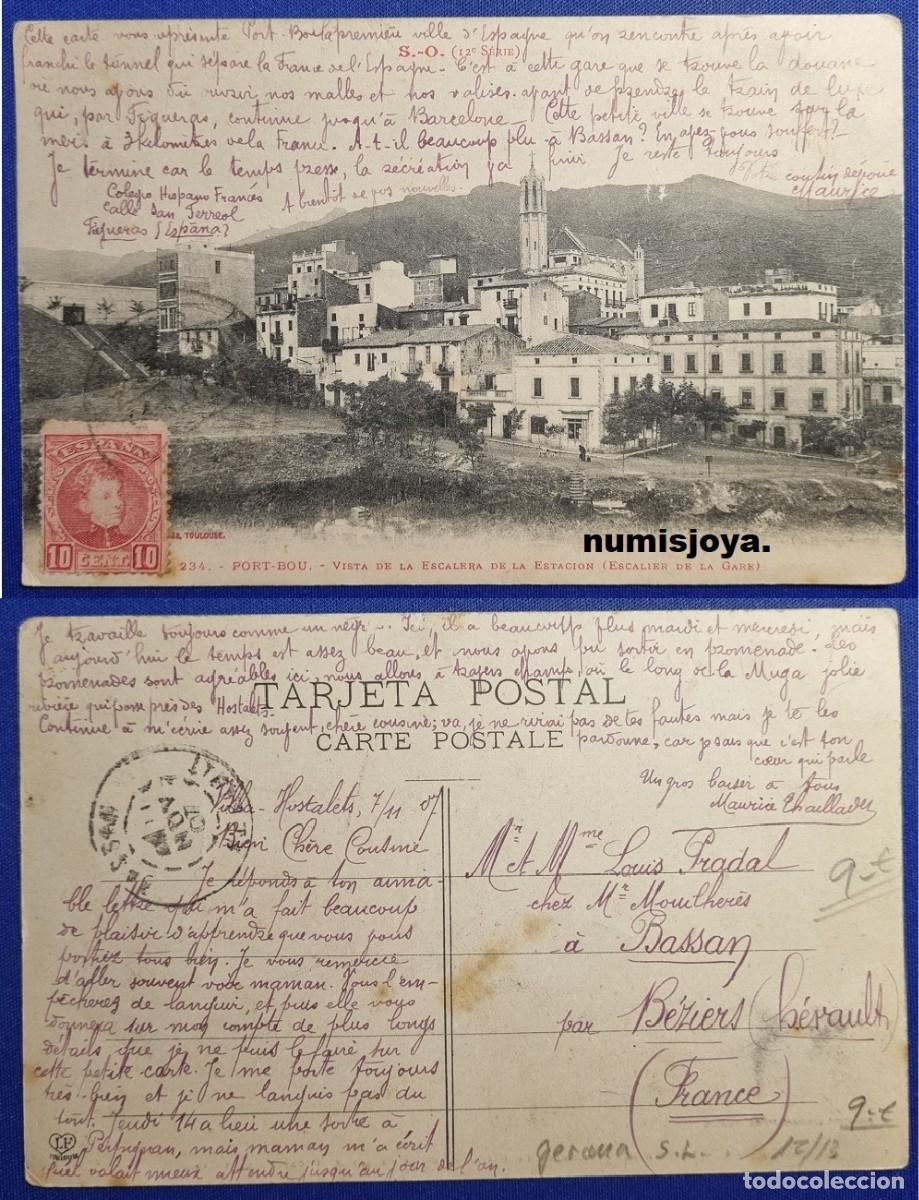 Cette carte vous représente Port-Bou la première ville d'Espagne qu'on rencontre après avoir
S.-O. (12e SÉRIE)
franchi le tunnel qui sépare la France de l'Espagne. C'est à cette gare que se trouve la douane
où nous avons dû ouvrir nos malles et nos valises avant de prendre le train de luxe
qui, par Figueras, continue jusqu'à Barcelone. Cette petite ville se trouve sur la
mer à 3 kilomètres de la France. A-t-il beaucoup plu à Bassan? En avez-vous souffert?
Je termine car le temps presse, la récréation va finir. Je reste toujours
Votre cousin dévoué
Maurice
Colegio Hispano Francés
A bientôt de vos nouvelles.
Calle San Ferreol
Figueras (España)
ESPAÑA
10 CENT. 10
TOULOUSE.
numisjoya.
234. - PORT-BOU. - VISTA DE LA ESCALERA DE LA ESTACION (ESCALIER DE LA GARE)
Je travaille toujours comme un nègr... Ici, il a beaucoup plus mardi et mercredi, mais
aujourd'hui le temps est assez beau, et nous avons pu sortir en promenade. Les
promenades sont agréables ici, nous allons à travers champs, où le long de la Muga jolie
rivière qui passe près des Hostalets.
TARJETA POSTAL
Continue à m'écrire assez souvent, chère cousine; va, je ne rirai pas de tes fautes mais je te les
CARTE POSTALE
pardonne, car je sais que c'est ton
cœur qui parle
Un gros baiser à tous
Maurice
NOV
07
Hostalets, 7/11 07
Bien Chère Cousine
Je réponds à ton aima-
ble lettre qui m'a fait beaucoup
de plaisir d'apprendre que vous vous
portez tous bien. Je vous remercie
d'aller souvent voir maman. Vous l'em-
pêcherez de languir, et puis elle vous
donnera sur mon compte de plus longs
détails que je ne puis le faire sur
cette petite carte. Je me porte toujours
très-bien et je ne languis pas du
tout. Jeudi 14 a lieu une sortie à
Perpignan, mais maman m'a écrit
qu'il valait mieux attendre jusqu'au jour de l'an.
Mr et Mme Louis Pradal
chez Mr Moulherès
à Bassan
par Béziers (Hérault)
(France)
9-€
9-€
gerona S.L. 12/13
todocoleccion